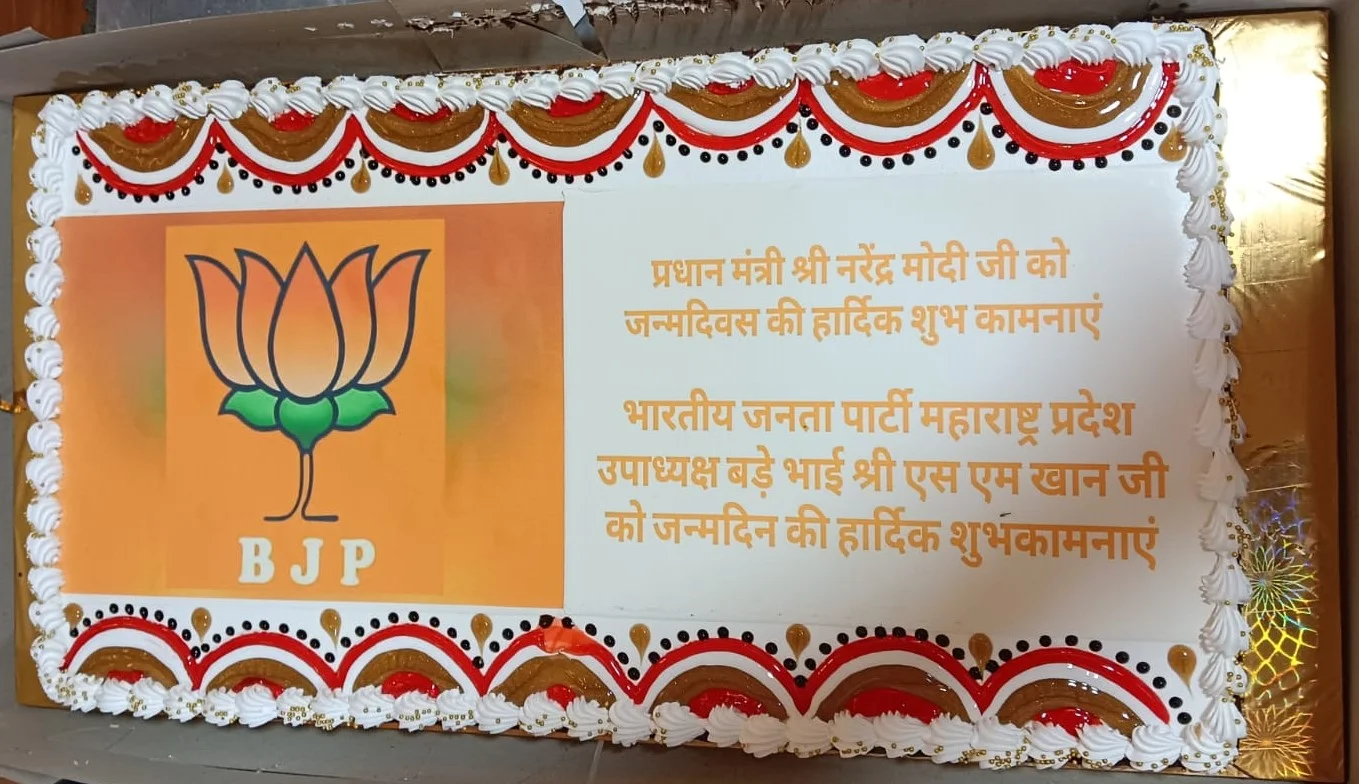 BJP
प्रधान मंत्री श्री नरेंद्र मोदी जी को
जन्मदिवस की हार्दिक शुभ कामनाएं
भारतीय जनता पार्टी महाराष्ट्र प्रदेश
उपाध्यक्ष बड़े भाई श्री एस एम खान जी
को जन्मदिन की हार्दिक शुभकामनाएं